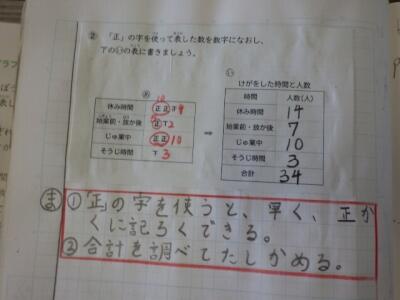 ② 「正」の字を使って表した数を数字になおし、
下の㋑の表に書きましょう。
㋐
10
休み時間 正正 4
始業前・放か後 正T2
じゅ業中 正正10
そうじ時間 3
⇒
㋑
けがをした時間と人数
時間 人数(人)
休み時間 14
始業前・放か後 7
じゅ業中 10
そうじ時間 3
合計 34
ま ①「正」の字を使うと、早く、正か
くに記ろくできる。
②合計を調べてたしかめる。